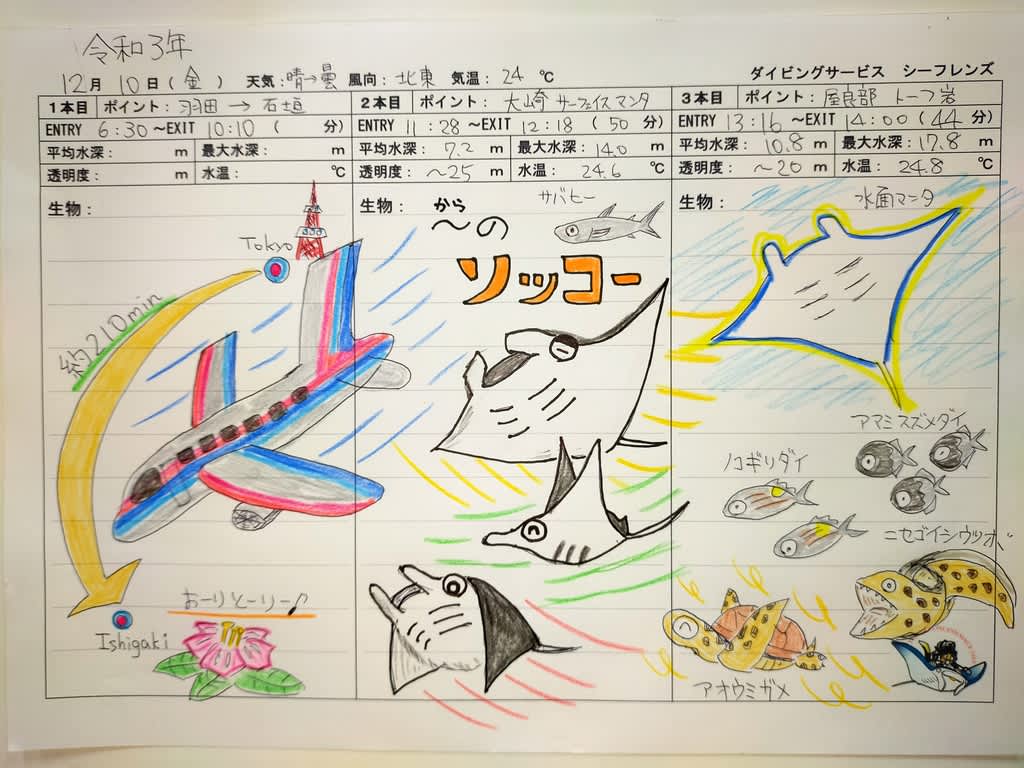 令和3年
12月 10日(金) 天気:晴→曇 風向:北東 気温:24 ℃
ダイビングサービス シーフレンズ
1本目 ポイント:羽田 → 石垣
ENTRY 6:30 ~EXIT 10:10 ( 分)
平均水深: m 最大水深: m
透明度: m 水温: ℃
生物:
Tokyo
約210min
Ishigaki
おーりとーりー♪
2本目 ポイント:大崎 サーフェイスマンタ
ENTRY 11:28 ~EXIT 12:18 (50 分)
平均水深:7.2 m 最大水深:14.0 m
透明度:~25 m 水温:24.6 ℃
生物:
から
~の
サバヒー
ソッコー
3本目 ポイント:屋良部 トーフ岩
ENTRY 13:16 ~EXIT 14:00 (44 分)
平均水深:10.8 m 最大水深:17.8 m
透明度:~20 m 水温:24.8 ℃
生物:
水面マンタ
アマミスズメダイ
ノコギリダイ
ニセゴイシウツボ
アオウミガメ